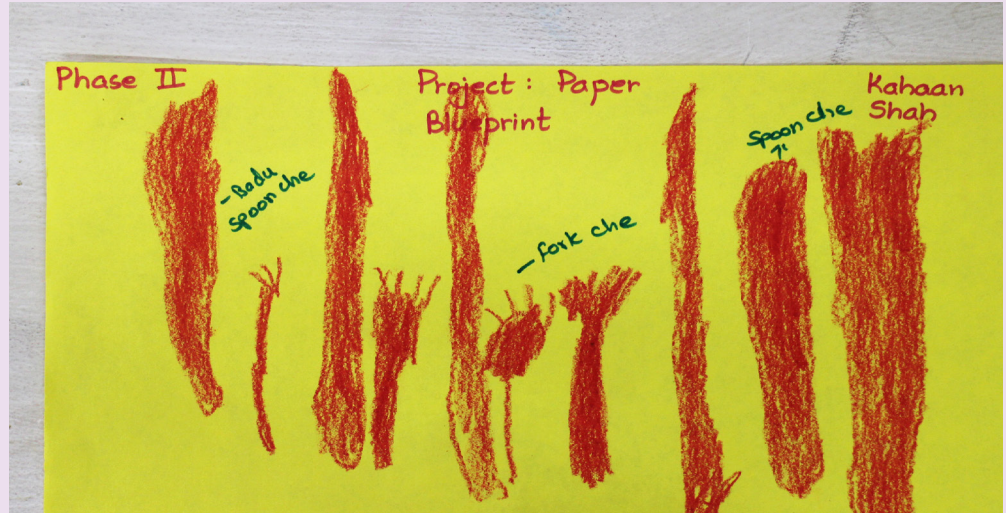 Phase II
Project: Paper
Blueprint
Kahaan
Shah
- Badu
spoon che
- fork che
Spoon che